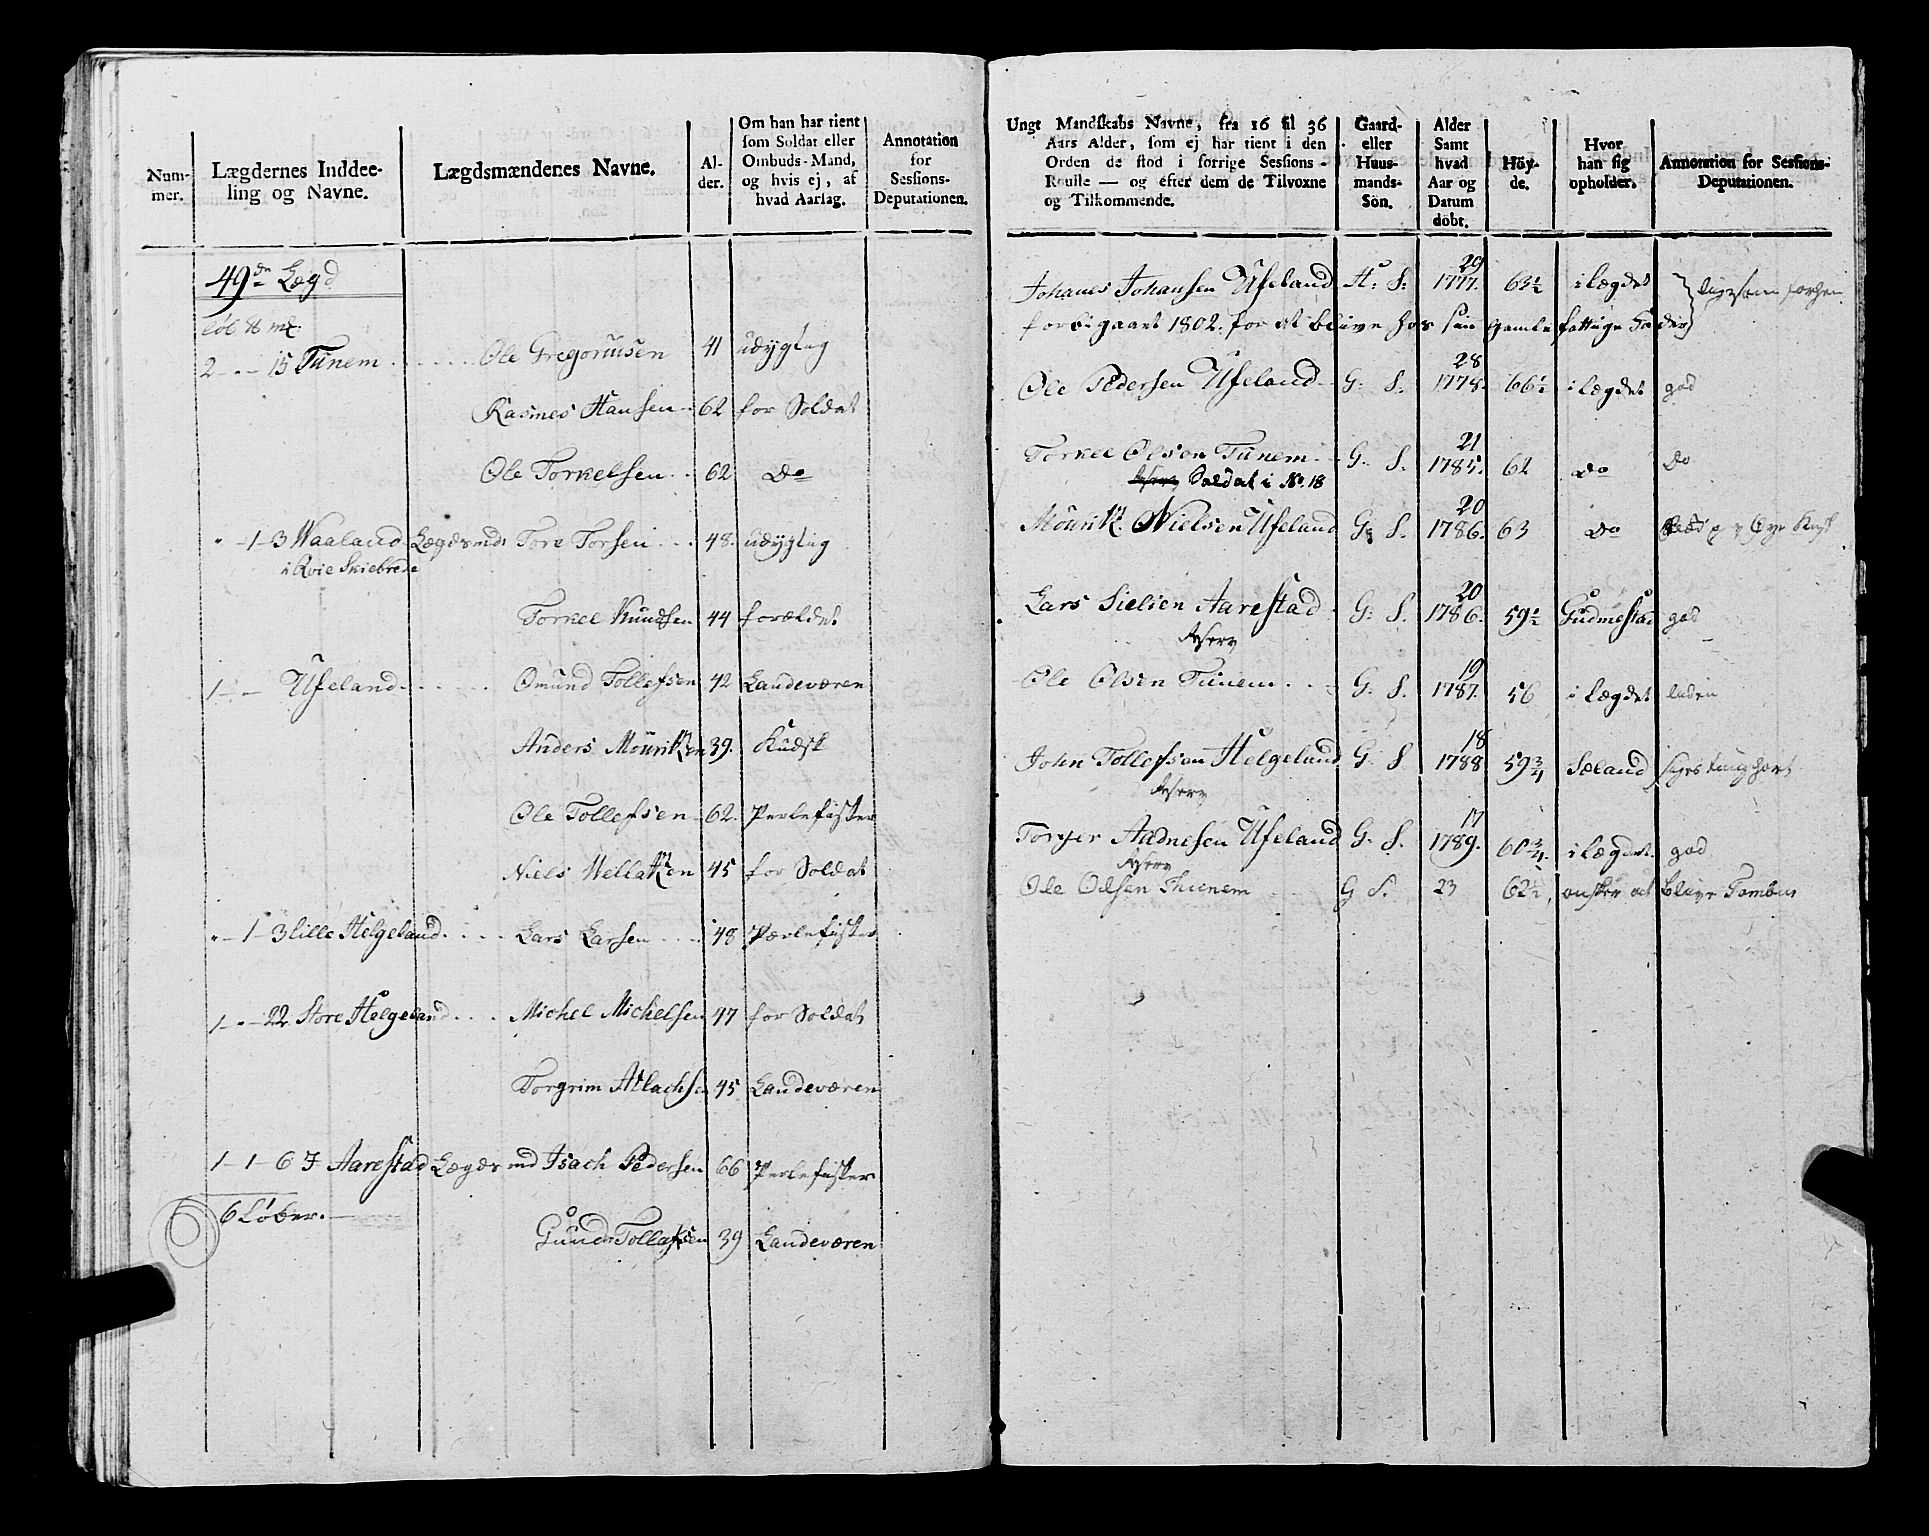 Num-
mer.
Lægdernes Inddee-
ling og Navne.
Lægdsmændenes Navne.
Al-
der.
Om han har tient
som Soldat eller
Ombuds-Mand,
og hvis ej, af
hvad Aarsag.
Annotation
for
Sessions-
Deputationen.
49de Lægd
løb ℔ mk.
2 - " - 15 Tunem Ole Gregoriusen 41 udygtig
Rasmus Hansen 62 for Soldat
Ole Torkelsen 62 Do
" - 1 - 3 Waaland Lægdsmd: Tore Torsen 48 udygtig
i Qvie Skiebrede
Torkel Knudsen 44 forældet
1 - - Ufeland Omund Tollefsen 42 Landeværen
Anders Mouritzen 39. Kudsk
Ole Tollefsen 62. Perlefisker
Niels Mellatzen 45 for Soldat
" - 1 - 3 lille Helgeland Lars Larsen 48 Perlefisker
1 - " - 22 Store Helgeland Michel Michelsen 47 for Soldat
Torgrim Atlachsen 45 Landeværen
1 - 1 - 6 Aarestad Lægdsmd Isach Pedersen 66 Perlefisker
6 Løber.
Gunder Tollefsen 39 Landeværen
Ungt Mandskabs Navne, fra 16 til 36
Aars Alder, som ej har tient i den
Orden de stod i forrige Sessions-
Roulle — og efter dem de Tilvoxne
og Tilkommende.
Gaard-
eller
Huus-
mands-
Sön.
Alder
Samt
hvad
Aar og
Datum
döbt.
Höy-
de.
Hvor
han sig
opholder.
Annotation for Sessions-
Deputationen.
29
Johanes Johansen Ufeland H: S: 1777. 63½ i lægdet
forbigaaet 1802. for at blive hos sin gamle fattige Fader
28
Ole Pedersen Ufeland G: S. 1778. 66½ i lægdet god
21
Torkel Olson Tunem G: S. 1785. 62 Do Do
Soldat i No. 18
20
Mouritz Nielsen Ufeland G: S. 1786. 63 Do
20
Lars Sielsen Aarestad G: S. 1786. 59½ Gudmestad god
Reserv
19
Ole Olsen Tunem G: S. 1787. 56 i lægdet liden
18
John Tollefsen Helgeland G S 1788 59¾ Sæland
Reserv
17
Torger Aadnesen Ufeland G: S. 1789. 60¾. i lægdet. god
Reserv
Ole Olsen Thunem G S. 23 62½, ønsker at blive Tambur